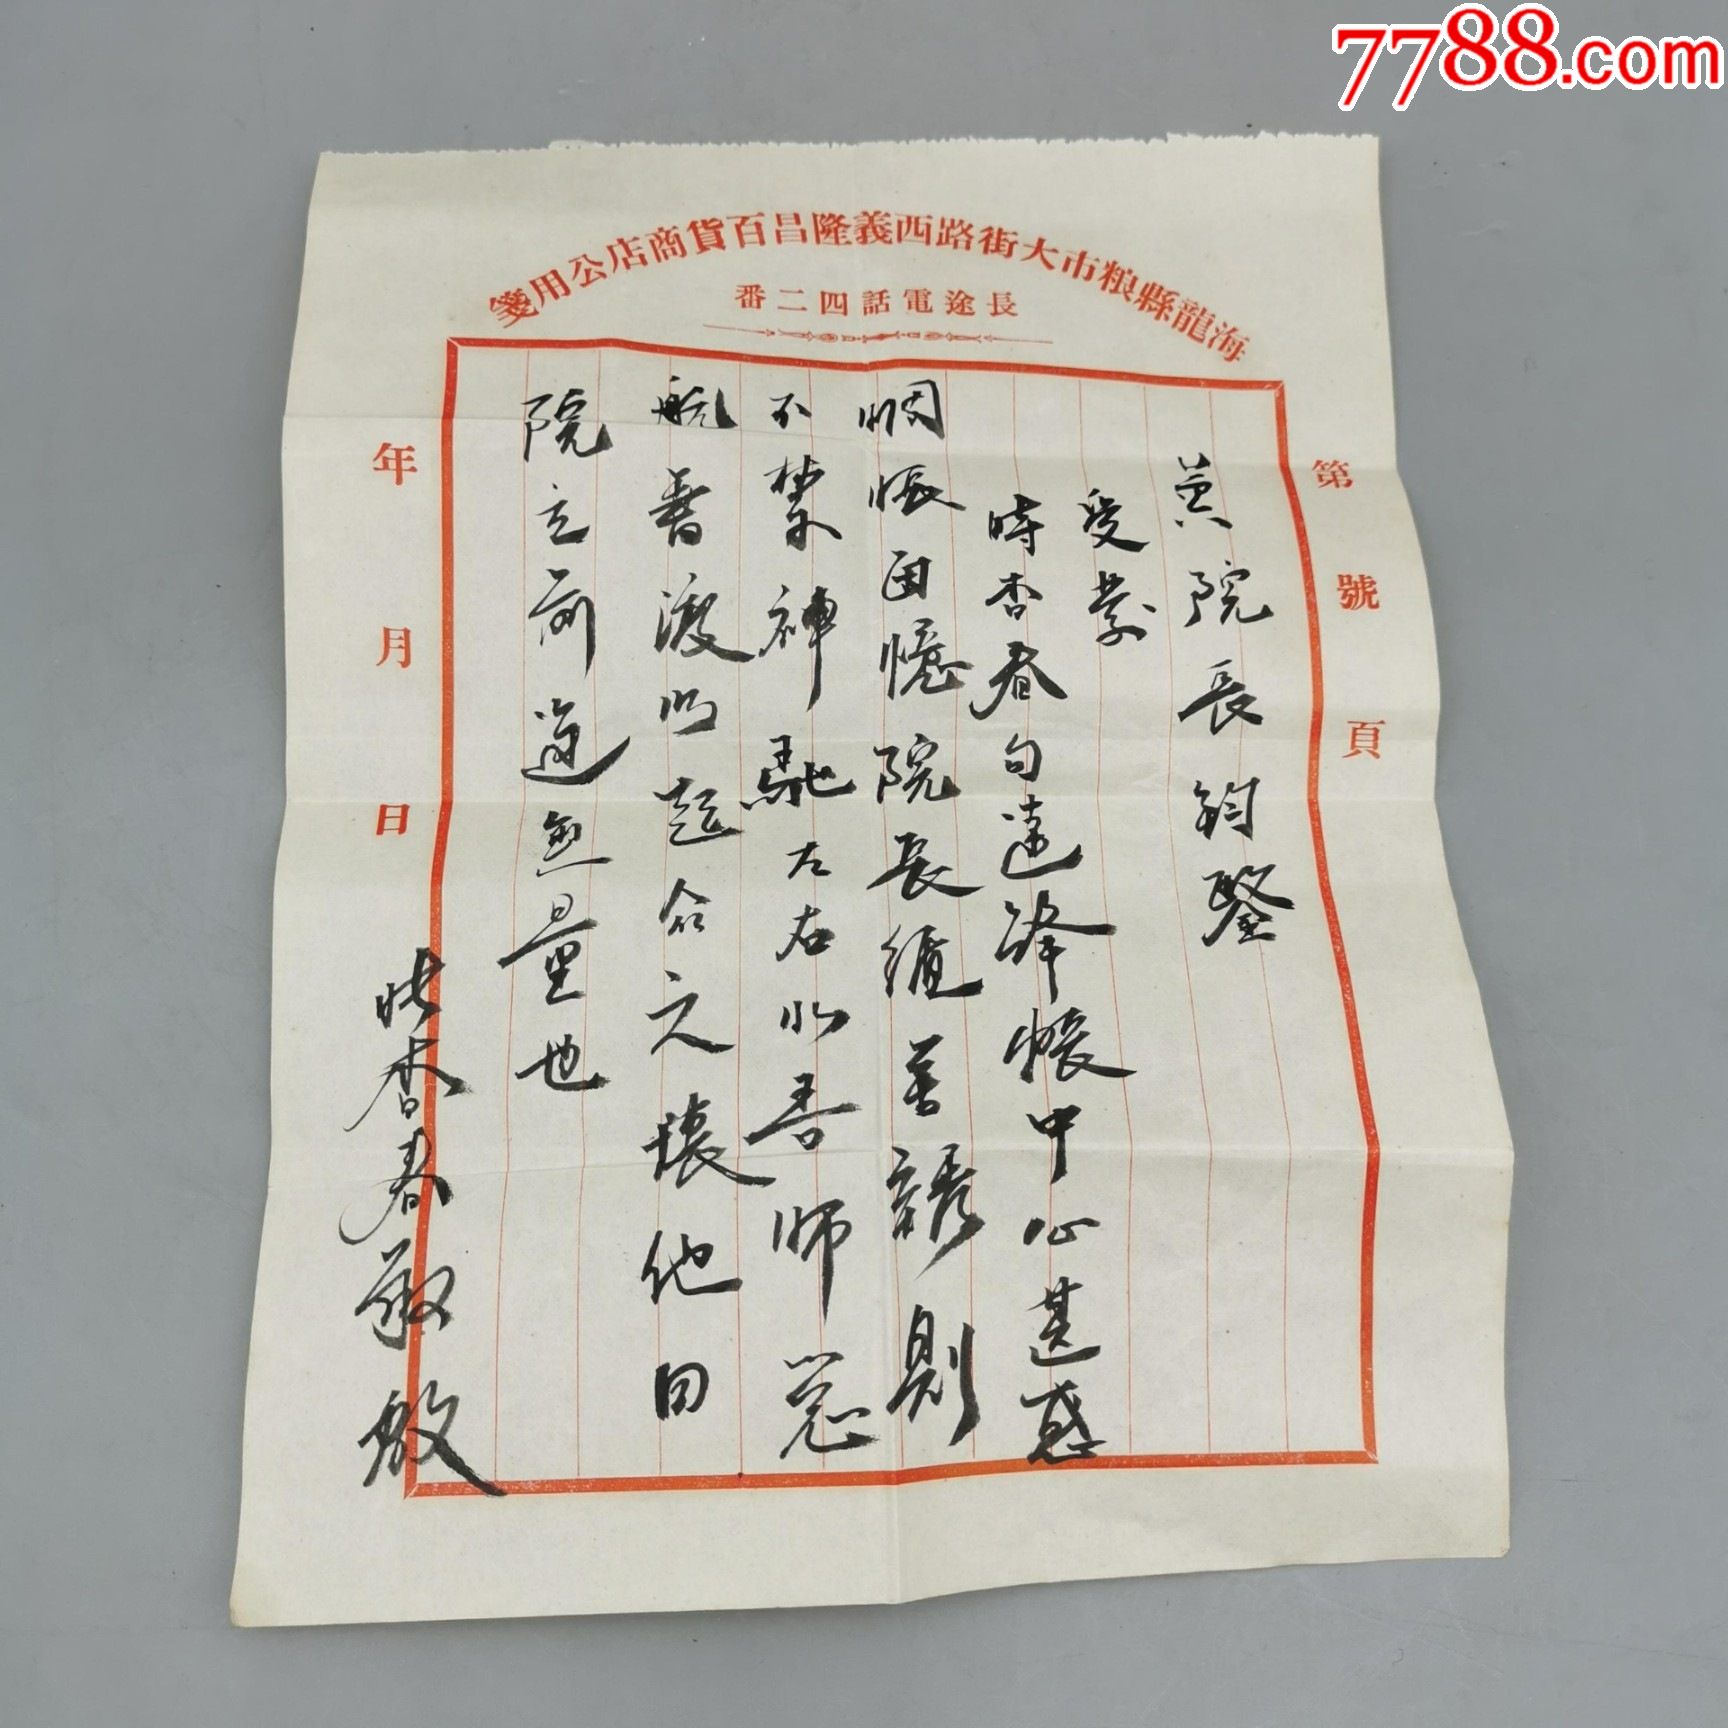 7788.com
海龍縣粮市大街路西義隆昌百貨商店公用箋
長途電話四二番
第 號 頁
黄院長鈞鑒
受業
時香春句遠絳帳中心甚感
惆悵囬憶院長循善誘則
不禁神馳左右水吾師
航普渡以超之壤他日
院之前途無量也
香春敬啟
年 月 日